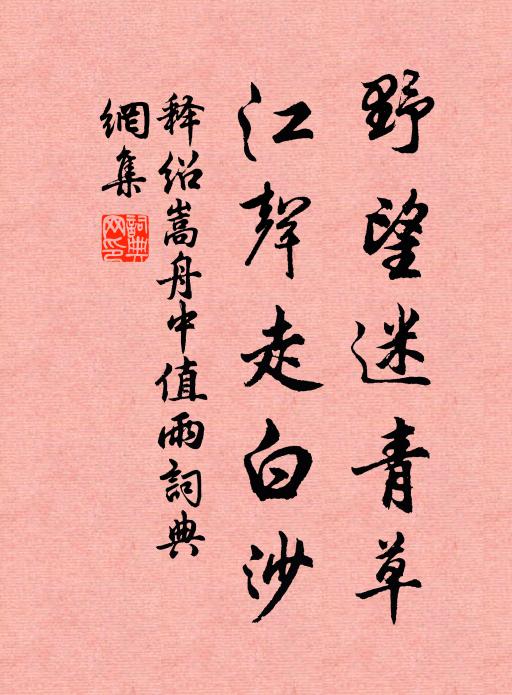 野望迷青草
江聲走白沙
释绍嵩舟中值雨詞典
網集
詞典網印